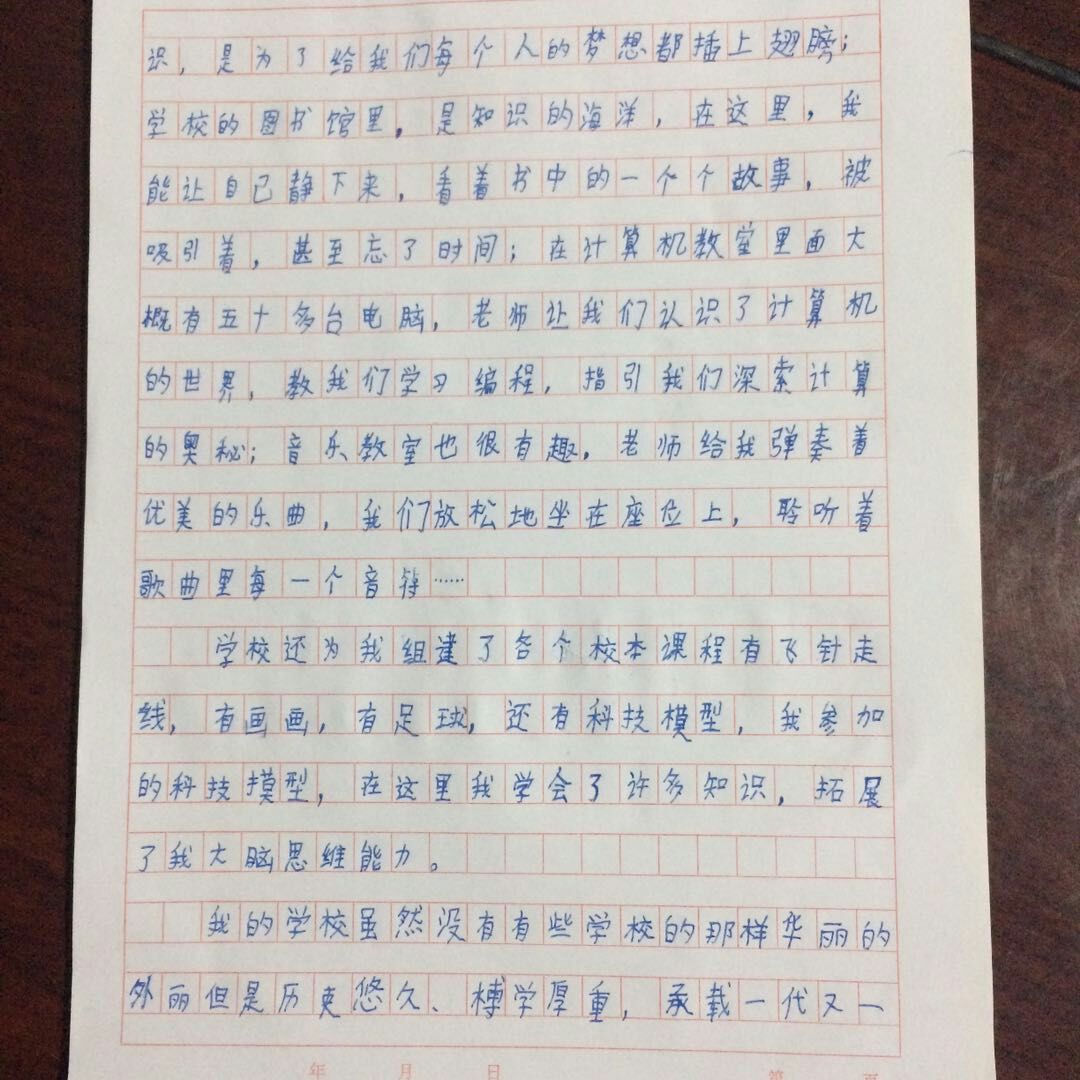 识，是为了给我们每个人的梦想都插上翅膀；
学校的图书馆里，是知识的海洋，在这里，我
能让自已静下来，看着书中的一个个故事，被
吸引着，甚至忘了时间；在计算机教室里面大
概有五十多台电脑，老师让我们认识了计算机
的世界，教我们学习编程，指引我们深索计算
的奥秘；音乐教室也很有趣，老师给我弹奏着
优美的乐曲，我们放松地坐在座位上，聆听着
歌曲里每一个音符……
学校还为我组建了各个校本课程有飞针走
线，有画画，有足球，还有科技模型，我参加
的科技模型，在这里我学会了许多知识，拓展
了我大脑思维能力。
我的学校虽然没有有些学校的那样华丽的
外丽但是历史悠久、博学厚重，承载一代又一
年 月 日 第 页